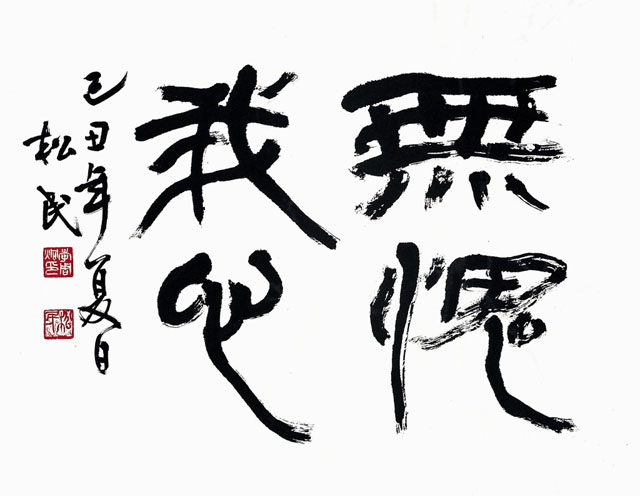 無愧
我心
己丑年夏日
松民